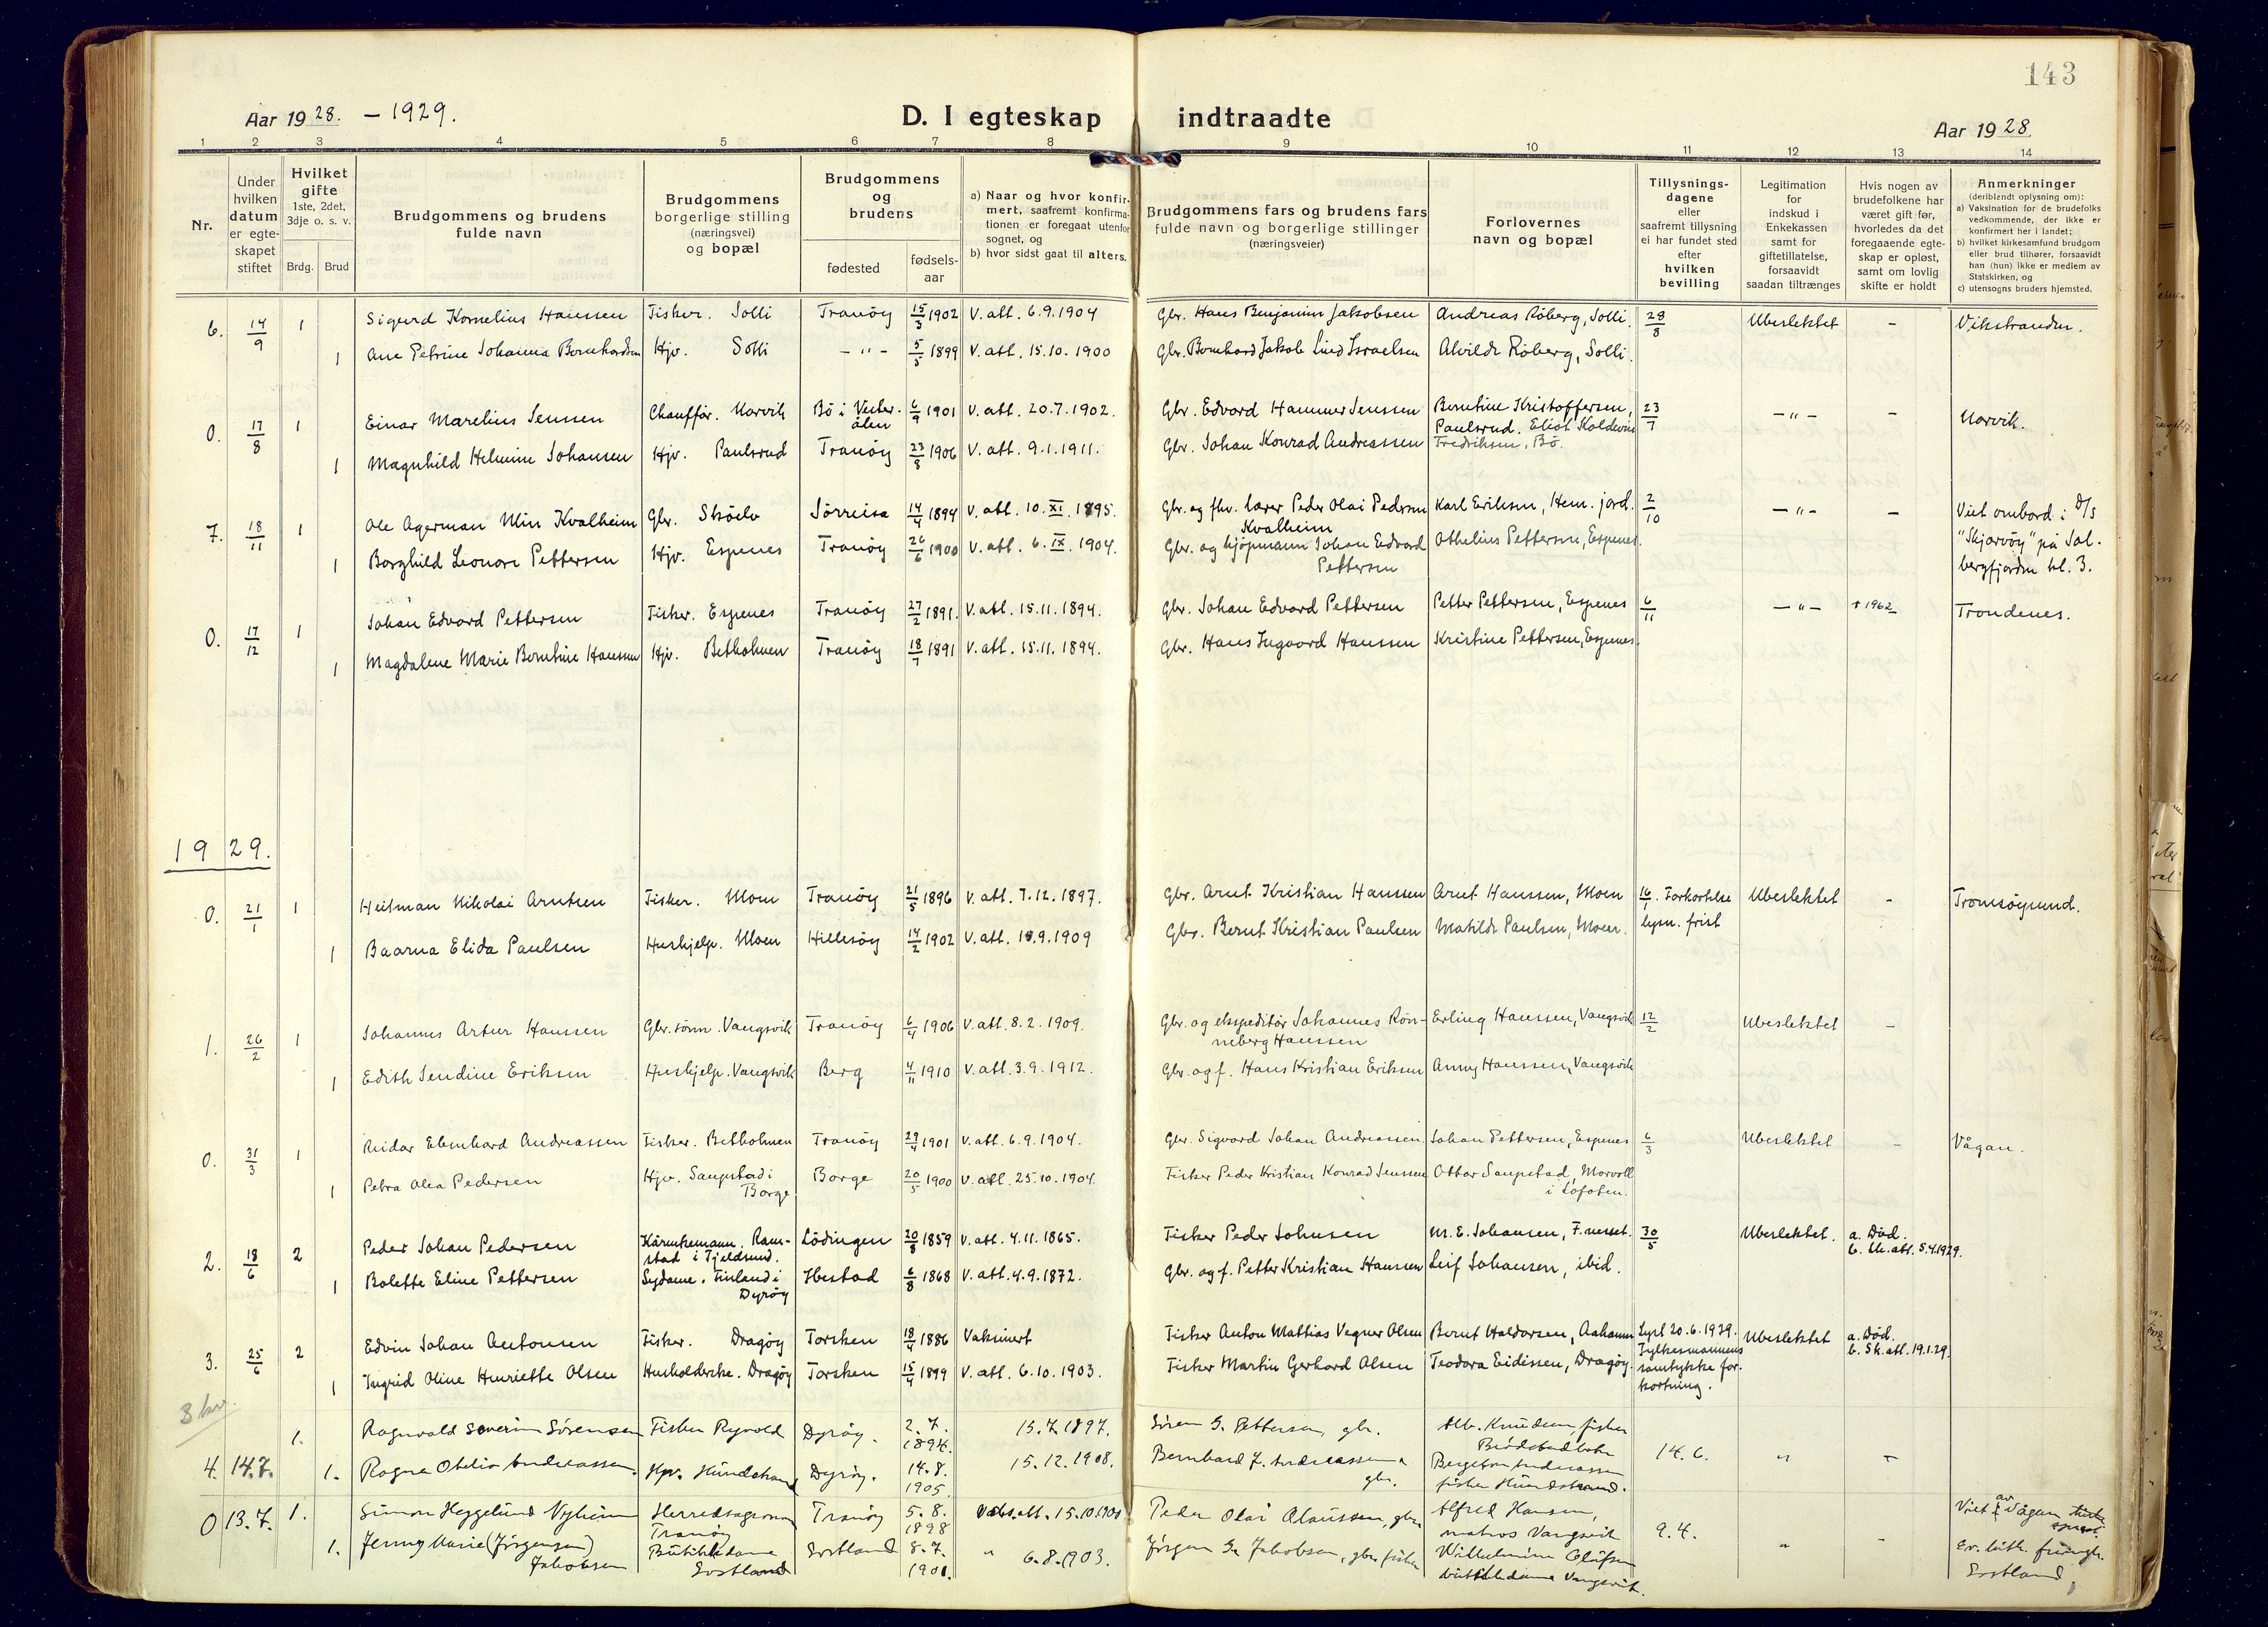 143
Aar 1928. – 1929.
D. I egteskap indtraadte
Aar 1928
1 2 3 4 5 6 7 8 9 10 11 12 13 14
Nr.
Under hvilken datum er egteskapet stiftet
Hvilket gifte 1ste, 2det, 3dje o. s. v.
Brdg. Brud
Brudgommens og brudens fulde navn
Brudgommens borgerlige stilling (næringsvei) og bopæl
Brudgommens og brudens
fødested
fødsels-aar
a) Naar og hvor konfirmert, saafremt konfirmationen er foregaat utenfor sognet, og
b) hvor sidst gaat til alters.
Brudgommens fars og brudens fars fulde navn og borgerlige stillinger (næringsveier)
Forlovernes navn og bopæl
Tillysningsdagene eller saafremt tillysning ei har fundet sted efter hvilken bevilling
Legitimation for indskud i Enkekassen samt for giftetillatelse, forsaavidt saadan tiltrænges
Hvis nogen av brudefolkene har været gift før, hvorledes da det foregaaende egteskap er opløst, samt om lovlig skifte er holdt
Anmerkninger (deriblandt oplysning om):
a) Vaksination for de brudefolks vedkommende, der ikke er konfirmert her i landet;
b) hvilket kirkesamfund brudgom eller brud tilhører, forsaavidt han (hun) ikke er medlem av Statskirken, og
c) utensogns bruders hjemsted.
6. 14/9 1 Sigurd Kornelius Hanssen Fisker. Solli Tranöy 15/3 1902 V. att. 6.9.1904 Gbr. Hans Benjamin Jakobsen Andreas Röberg, Solli. 28/8 Ubeslektet – Vikstranden.
1 Ane Petrine Johanna Bernhardsen Hjv. Solli – " – 5/5 1899 V. att. 15.10.1900 Gbr. Bernhard Jakob Lind Israelsen Alvilde Röberg, Solli.
0. 17/8 1 Einar Marelius Jenssen Chauffør. Narvik Bö i Vesterålen 6/9 1901 V. att. 20.7.1902. Gbr. Edvard Hammer Jenssen Berntine Kristoffersen, Paulsrud. Eliot Koldevin 23/7 – " – – Narvik.
1 Magnhild Helmine Johansen Hjv. Paulsrud Tranöy 23/8 1906 V. att. 9.1.1911. Gbr. Johan Konrad Andreassen Fredriksen, Bö.
7. 18/11 1 Ole Agerman Kvalheim Gbr. Sköelv Sörreisa 14/4 1894 V. att. 10.XI.1895. Gbr. og fhv. lærer Peder Olai Pedersen Kvalheim Karl Eriksen, Hem. jord. 2/10 – " – – Viet ombord i D/S
1 Borghild Leonore Pettersen Hjv. Espenes Tranöy 26/6 1900 V. att. 6.IX.1904. Gbr. og kjöpmann Johan Edvard Pettersen Othelius Pettersen, Espenes. "Skjervöy" på Solbergfjorden kl. 3.
0. 17/12 1 Johan Edvard Pettersen Fisker. Espenes Tranöy 27/2 1891. V. att. 15.11.1894. Gbr. Johan Edvard Pettersen Petter Pettersen, Espenes 6/11 – " – + 1962 Trondenes.
1 Magdalene Marie Berntine Hanssen Hjv. Betholmen Tranöy 18/7 1891 V. att. 15.11.1894. Gbr. Hans Ingvard Hanssen Kristine Pettersen, Espenes.
1929.
0. 21/1 1 Heitman Nikolai Arntsen Fisker. Moen Tranöy 21/5 1896 V. att. 7.12.1897. Gbr. Arnt Kristian Hanssen Arnt Hanssen, Moen 16/1. Forkortelse Ubeslektet – Tromsöysund.
1 Baarna Elida Paulsen Hushjelp. Moen Hillesöy 14/2 1902 V. att. 18.9.1909 Gbr. Bernt Kristian Paulsen Matilde Paulsen, Moen. lysn. frist
1. 26/2 1 Johannes Artur Hanssen Gbr. sönn. Vangsvik Tranöy 6/4 1906 V. att. 8.2.1909. Gbr. og ekspeditör Johannes Rönneberg Hanssen Erling Hanssen, Vangsvik 12/2 Ubeslektet –
1 Edith Sendine Eriksen Hushjelp. Vangsvik Berg 4/11 1910 V. att. 3.9.1912. Gbr. og f. Hans Kristian Eriksen Anny Hanssen, Vangsvik
0. 31/3 1 Reidar Ebenhard Andreassen Fisker. Betholmen Tranöy 29/4 1901 V. att. 6.9.1904. Gbr. Sigvard Johan Andreassen Johan Pettersen, Espenes 6/3 Ubeslektet – Vågan.
1 Petra Olea Pedersen Hjv. Saupstad i Borge Borge 20/5 1900 V. att. 25.10.1904. Fisker Peder Kristian Konrad Jenssen Ottar Saupstad, Morvoll i Lofoten.
2. 18/6 2 Peder Johan Pedersen Kårenhemann. Ramstad i Tjeldsund. Lödingen 20/8 1859 V. att. 4.11.1865. Fisker Peder Johnsen M. E. Johansen, F.nesset. 30/5 Ubeslektet. a. Död. b. Sk. att. 5.4.1929.
1 Bolette Eline Pettersen Sydame. Finland i Dyröy Ibestad 6/8 1868 V. att. 4.9.1872. Gbr. og f. Petter Kristian Hanssen Leif Johansen, ibid.
3. 25/6 2 Edvin Johan Antonsen Fisker. Dragöy Torsken 18/4 1886 Vaksinert Fisker Anton Mattias Vegner Olsen Bernt Haldorsen, Lyst 20.6.1929. Fylkesmannens samtykke forkortning. Ubeslektet a. Död. b. Sk. att. 19.1.29.
1 Ingrid Oline Henriette Olsen Husholderske. Dragöy Torsken 15/4 1899 V. att. 6.10.1903. Fisker Martin Gerhard Olsen Teodora Eidissen, Dragöy.
3 kv.
1. Ragnvald Severin Sörensen Fisker Dyröy. 2.7. 1894. 15.7.1897. Sören G. Pettersen, gbr. Alb. Knudsen, fisker
4. 14.7. 1. Ragna Otelie Andreassen. Hjv. Dyröy. 14.8. 1905. 15.12.1908. Bernhard J. Andreassen gbr. Andreassen fisker 14.6. " –
0 13.7. 1. Simon Heggelund Nyheim Herredsagronom Tranöy Tranöy 5.8. 1898 Vaks. att. 15.10.1901 Peder Olai Olaussen, gbr. Alfred Hansen, matros Vangsvik 9.4. Viet av Vågan
1. Jenny Marie (Jörgensen) Jakobsen Butikkdame Svolland 8.7. 1901. " 6.8.1903. Jörgen Jakobsen, gbr. fisker Wilhelmine Olufsen butikkdame Vangsvik. " – Ev. luth.